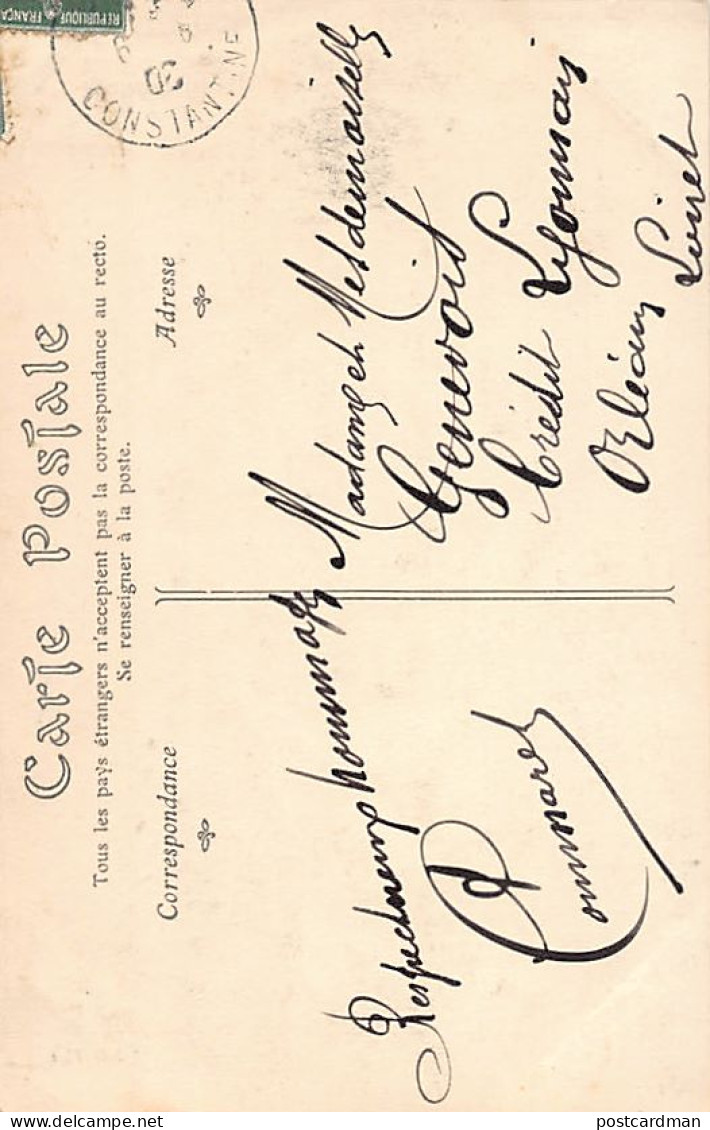 REPUBLIQUE FRANÇA
CONSTANTINE
Carte Postale
Tous les pays étrangers n'acceptent pas la correspondance au recto.
Se renseigner à la poste.
Correspondance
Adresse
Respectueux hommages
Madame et Mesdemoiselles
Genevois
Crédit Lyonnais
Orléans
Loiret
postcardman